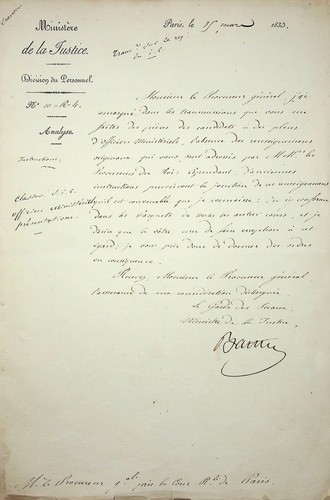 Ministère
de la Justice.
Division du Personnel.
N.º 10-R-4.
Analyse.
Instructions.
Classer
officiers ministériels
présentations
Paris, le 15 mars 1833.
Monsieur le Procureur général, j'ai
remarqué dans les transmissions que vous me
faites des pièces des candidats à des places
d'officiers Ministériels, l'absence des renseignemens
originaux qui vous sont adressés par MM. les
Procureurs du Roi; Cependant d'anciennes
instructions prescrivent la jonction de ces renseignemens
et il est convenable que je connaisse: on s'y conforme
dans les parquets de toutes les autres cours, et je
désire que le vôtre ne fasse exception à cet
égard; je vous prie donc de donner des ordres
en conséquence.
Recevez, Monsieur le Procureur général
l'assurance de ma considération distinguée.
Le Garde des Sceaux
Ministre de la Justice,
Barthe
Mr. le Procureur gal. près la Cour Rle. de Paris.